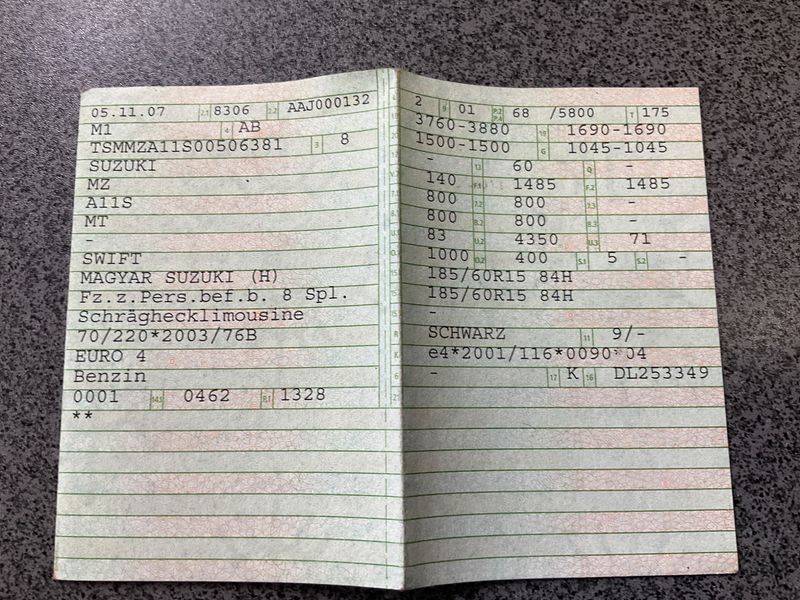 05.11.07 2.1 8306 2.2 AAJ000132
M1 4 AB
TSMMZA11S00506381 3 8
SUZUKI
MZ
A11S
MT
-
SWIFT
MAGYAR SUZUKI (H)
Fz.z.Pers.bef.b. 8 Spl.
Schräghecklimousine
70/220*2003/76B
EURO 4
Benzin
0001 14.1 0462 P.1 1328
**
L 2 9 01 P.2 P.4 68 /5800 T 175
18 3760-3880 19 1690-1690
20 1500-1500 G 1045-1045
12 - 13 60 Q -
V.7 140 F.1 1485 F.2 1485
7.1 800 7.2 800 7.3 -
8.1 800 8.2 800 8.3 -
U.1 83 U.2 4350 U.3 71
O.1 1000 O.2 400 S.1 5 S.2 -
185/60R15 84H
185/60R15 84H
-
R SCHWARZ 11 9/-
K e4*2001/116*0090*04
6 - 17 K 16 DL253349
21